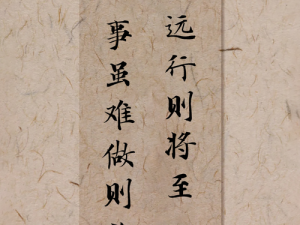 远行则将至
事虽难做则